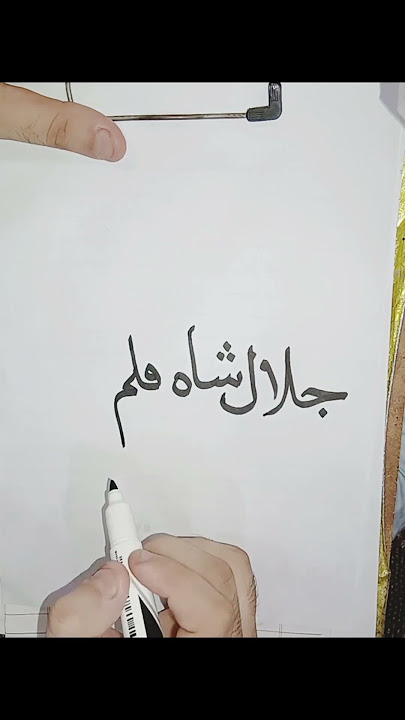 جلال شاه فلم